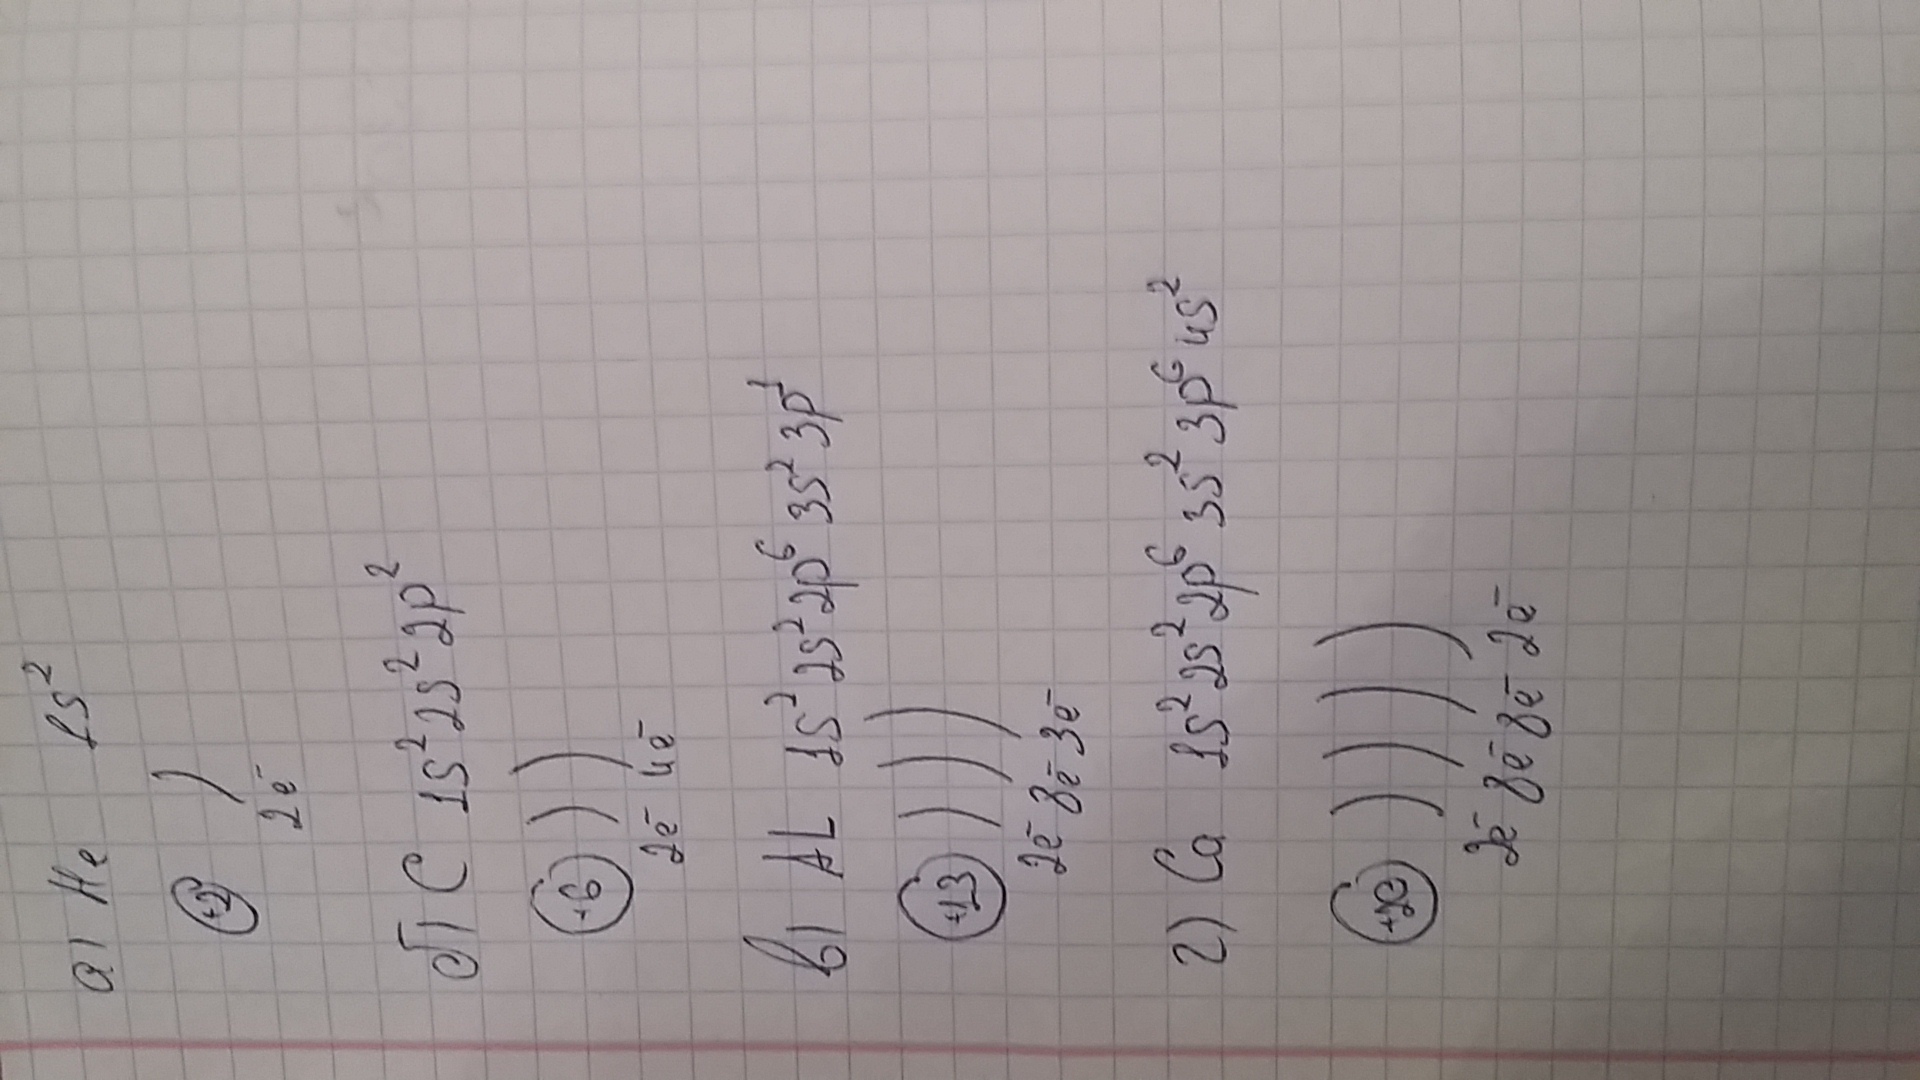 а) He 1s²
+2 )
2e⁻
б) C 1s² 2s² 2p²
+6 ) )
2e⁻ 4e⁻
в) AL 1s² 2s² 2p⁶ 3s² 3p¹
+13 ) ) )
2e⁻ 8e⁻ 3e⁻
г) Ca 1s² 2s² 2p⁶ 3s² 3p⁶ 4s²
+20 ) ) ) )
2e⁻ 8e⁻ 8e⁻ 2e⁻